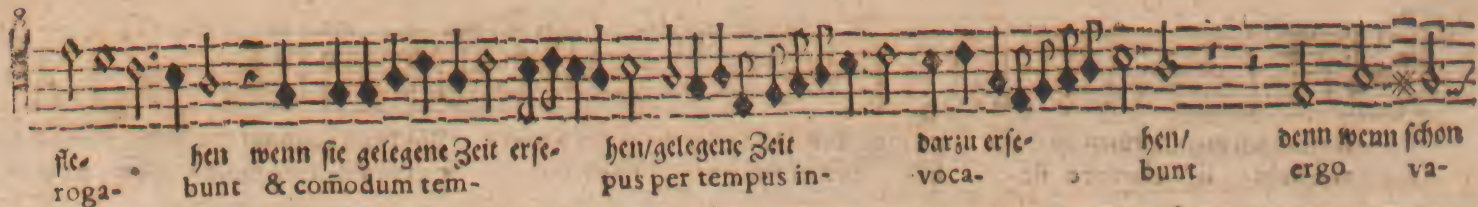 fle- hen wenn sie gelegene Zeit erse- hen/gelegene Zeit darzu erse- hen/ denn wenn schon
roga- bunt & com̄odum tem- pus per tempus in- voca- bunt ergo va-